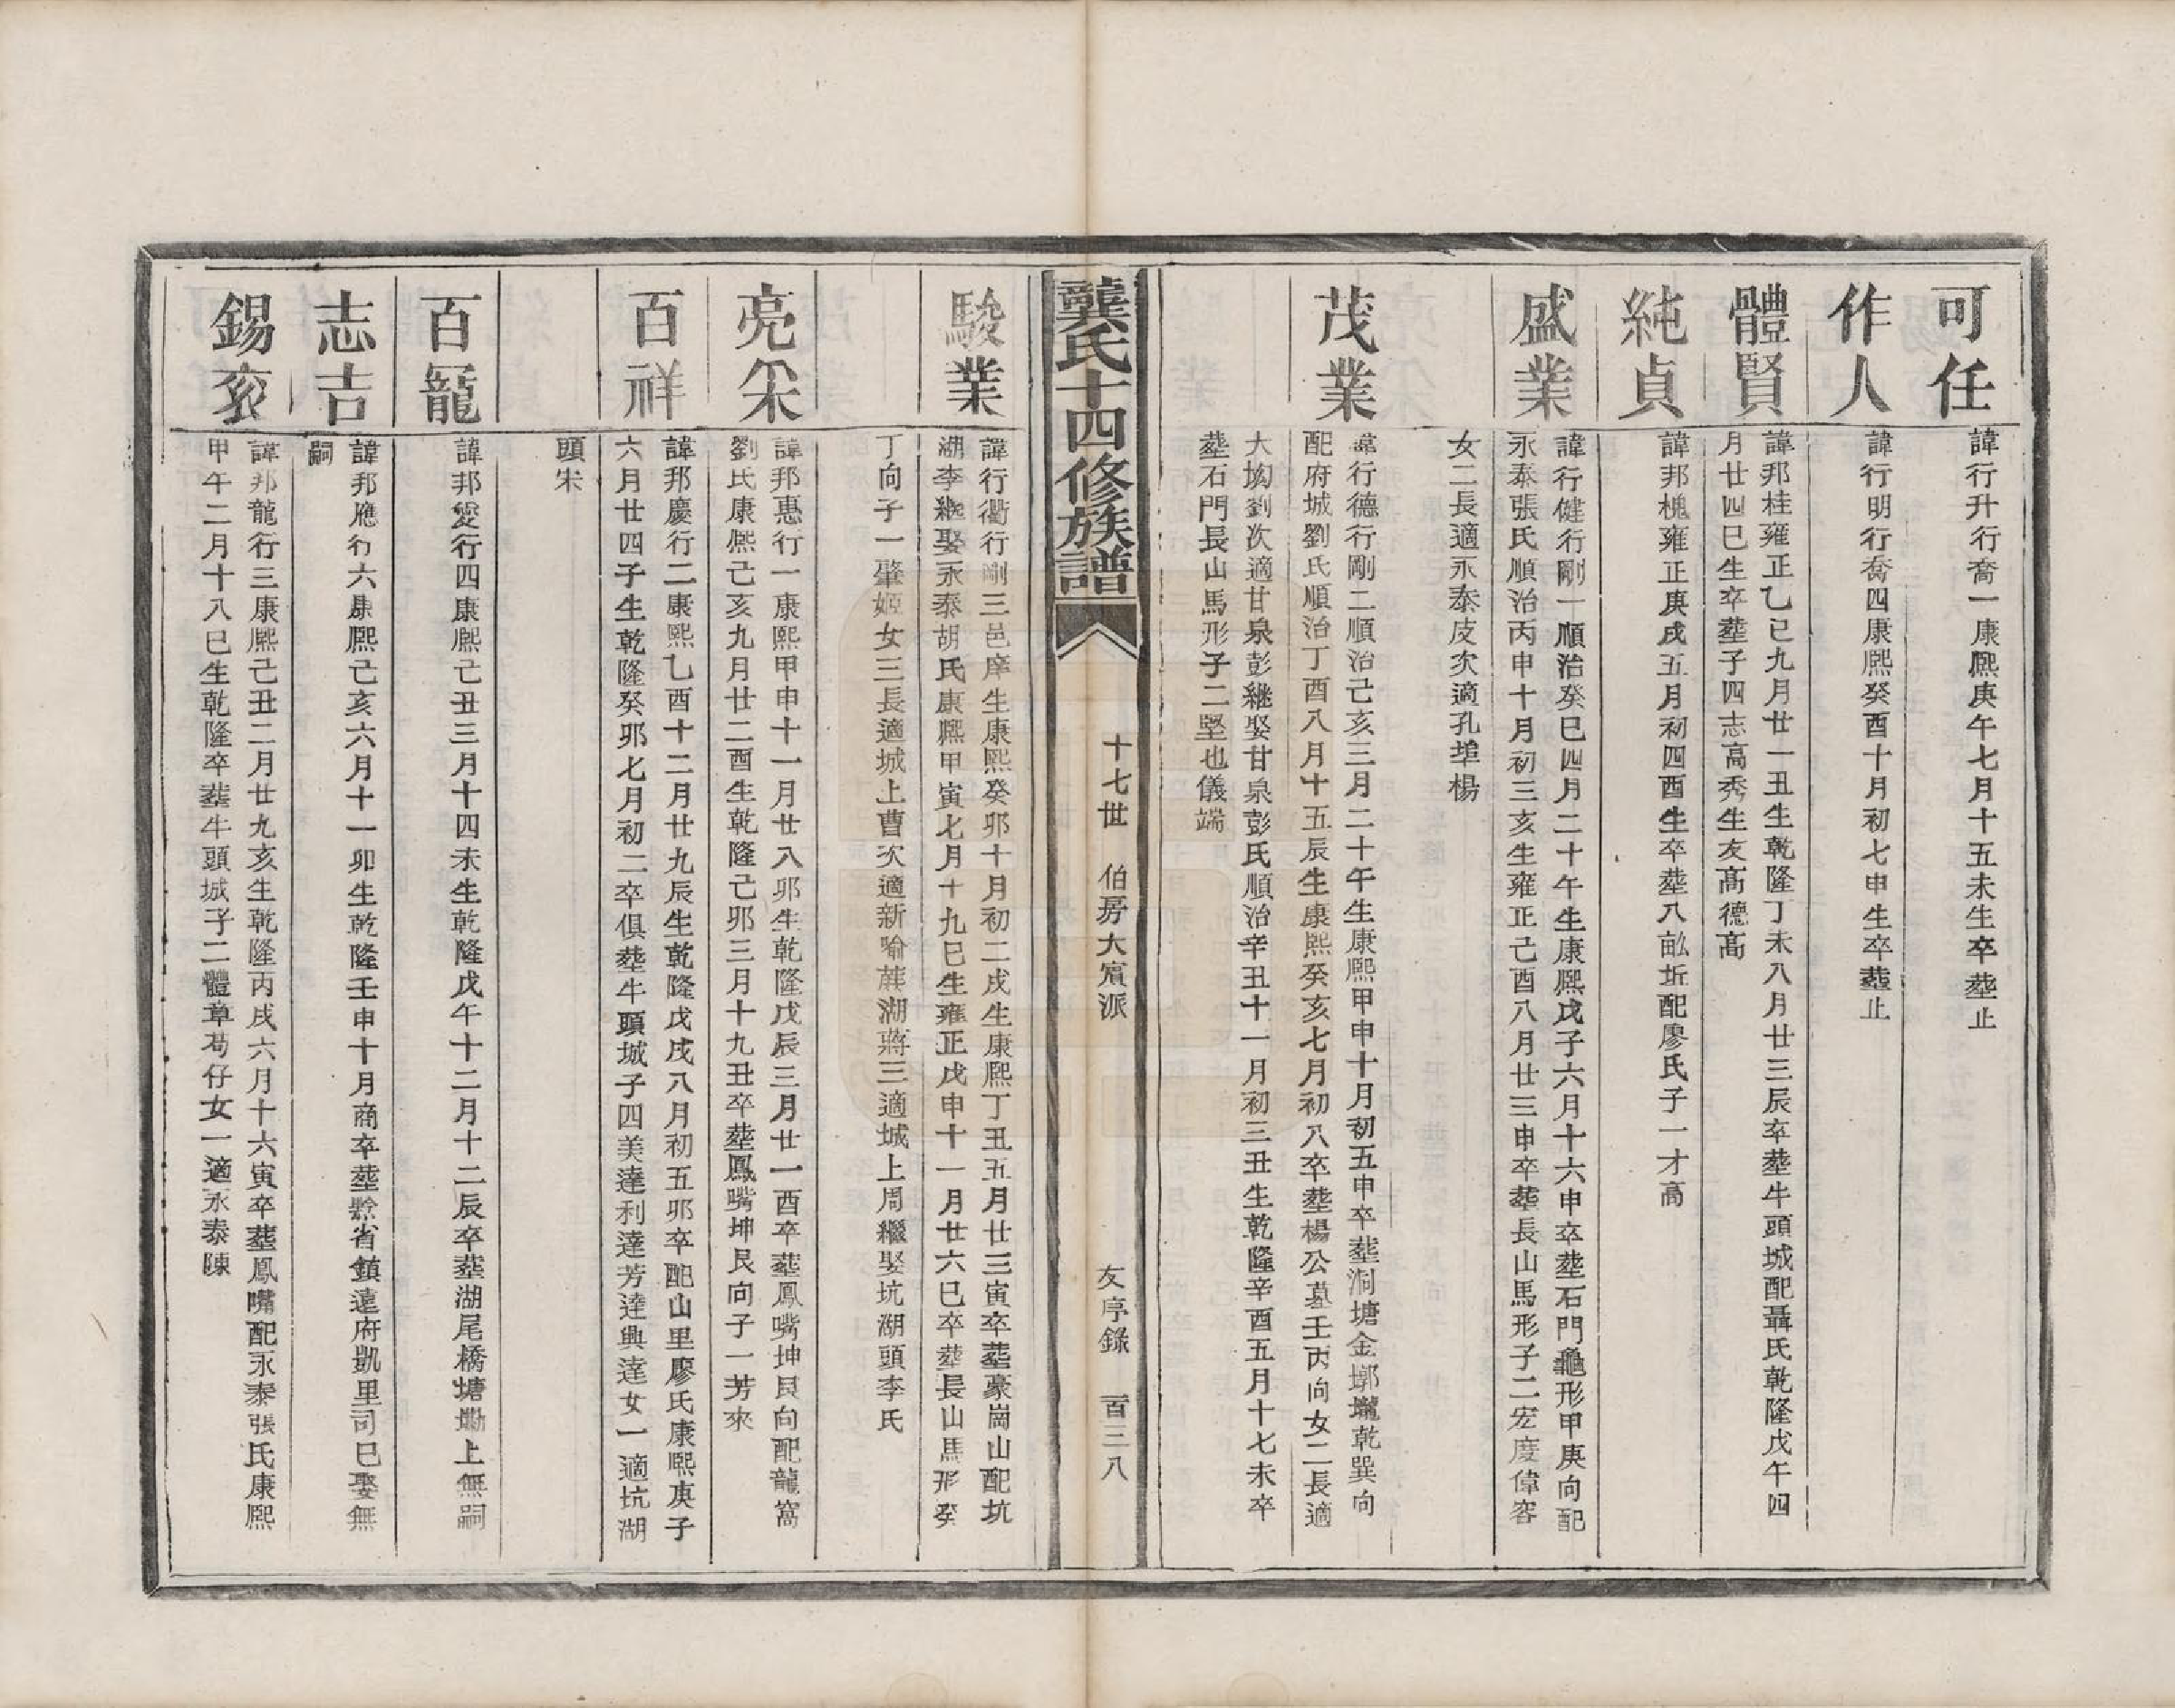 可任
諱行升行喬一康熙庚午七月十五未生卒塟止
作人
諱行明行喬四康熙癸酉十月初七申生卒塟止
體賢
諱邦桂雍正乙巳九月廿一丑生乾隆丁未八月廿三辰卒塟牛頭城配聶氏乾隆戊午四
月廿四巳生卒塟子四志高秀生友高德高
純貞
諱邦槐雍正庚戌五月初四酉生卒塟八畝坵配廖氏子一才高
盛業
諱行健行剛一順治癸巳四月二十午生康熙戊子六月十六申卒塟石門龜形甲庚向配
永泰張氏順治丙申十月初三亥生雍正己酉八月廿三申卒塟長山馬形子二宏度偉容
女二長適永泰皮次適孔埠楊
茂業
諱行德行剛二順治己亥三月二十午生康熙甲申十月初五申卒塟洞塘金墎壠乾巽向
配府城劉氏順治丁酉八月十五辰生康熙癸亥七月初八卒塟楊公墓壬丙向女二長適
大㘭劉次適甘泉彭継娶甘泉彭氏順治辛丑十一月初三丑生乾隆辛酉五月十七未卒
塟石門長山馬形子二堅也儀端
龔氏十四修族譜
十七世
伯房大賔派
友序錄
百三八
駿業
諱行衢行剛三邑庠生康熙癸卯十月初二戌生康熙丁丑五月廿三寅卒塟豪崗山配坑
湖李継娶永泰胡氏康熙甲寅七月十九巳生雍正戊申十一月廿六巳卒塟長山馬形癸
丁向子一肇姬女三長適城上曹次適新喻蔴湖蔣三適城上周繼娶坑湖頭李氏
亮采
諱邦惠行一康熙甲申十一月廿八卯生乾隆戊辰三月廿一酉卒塟鳳嘴坤艮向配龍窩
劉氏康熙己亥九月廿二酉生乾隆己卯三月十九丑卒塟鳳嘴坤艮向子一芳來
百祥
諱邦慶行二康熙乙酉十二月廿九辰生乾隆戊戌八月初五卯卒配山里廖氏康熙庚子
六月廿四子生乾隆癸卯七月初二卒俱塟牛頭城子四美達利達芳達興達女一適坑湖
頭宋
百寵
諱邦燮行四康熙己丑三月十四未生乾隆戊午十二月十二辰卒塟湖尾橋塘塅上無嗣
志吉
諱邦應行六康熙己亥六月十一卯生乾隆壬申十月商卒塟黔省鎮遠府凱里司巳娶無
嗣
錫衮
諱邦龍行三康熙己丑二月廿九亥生乾隆丙戌六月十六寅卒塟鳳嘴配永泰張氏康熙
甲午二月十八巳生乾隆卒塟牛頭城子二體章苟仔女一適永泰陳